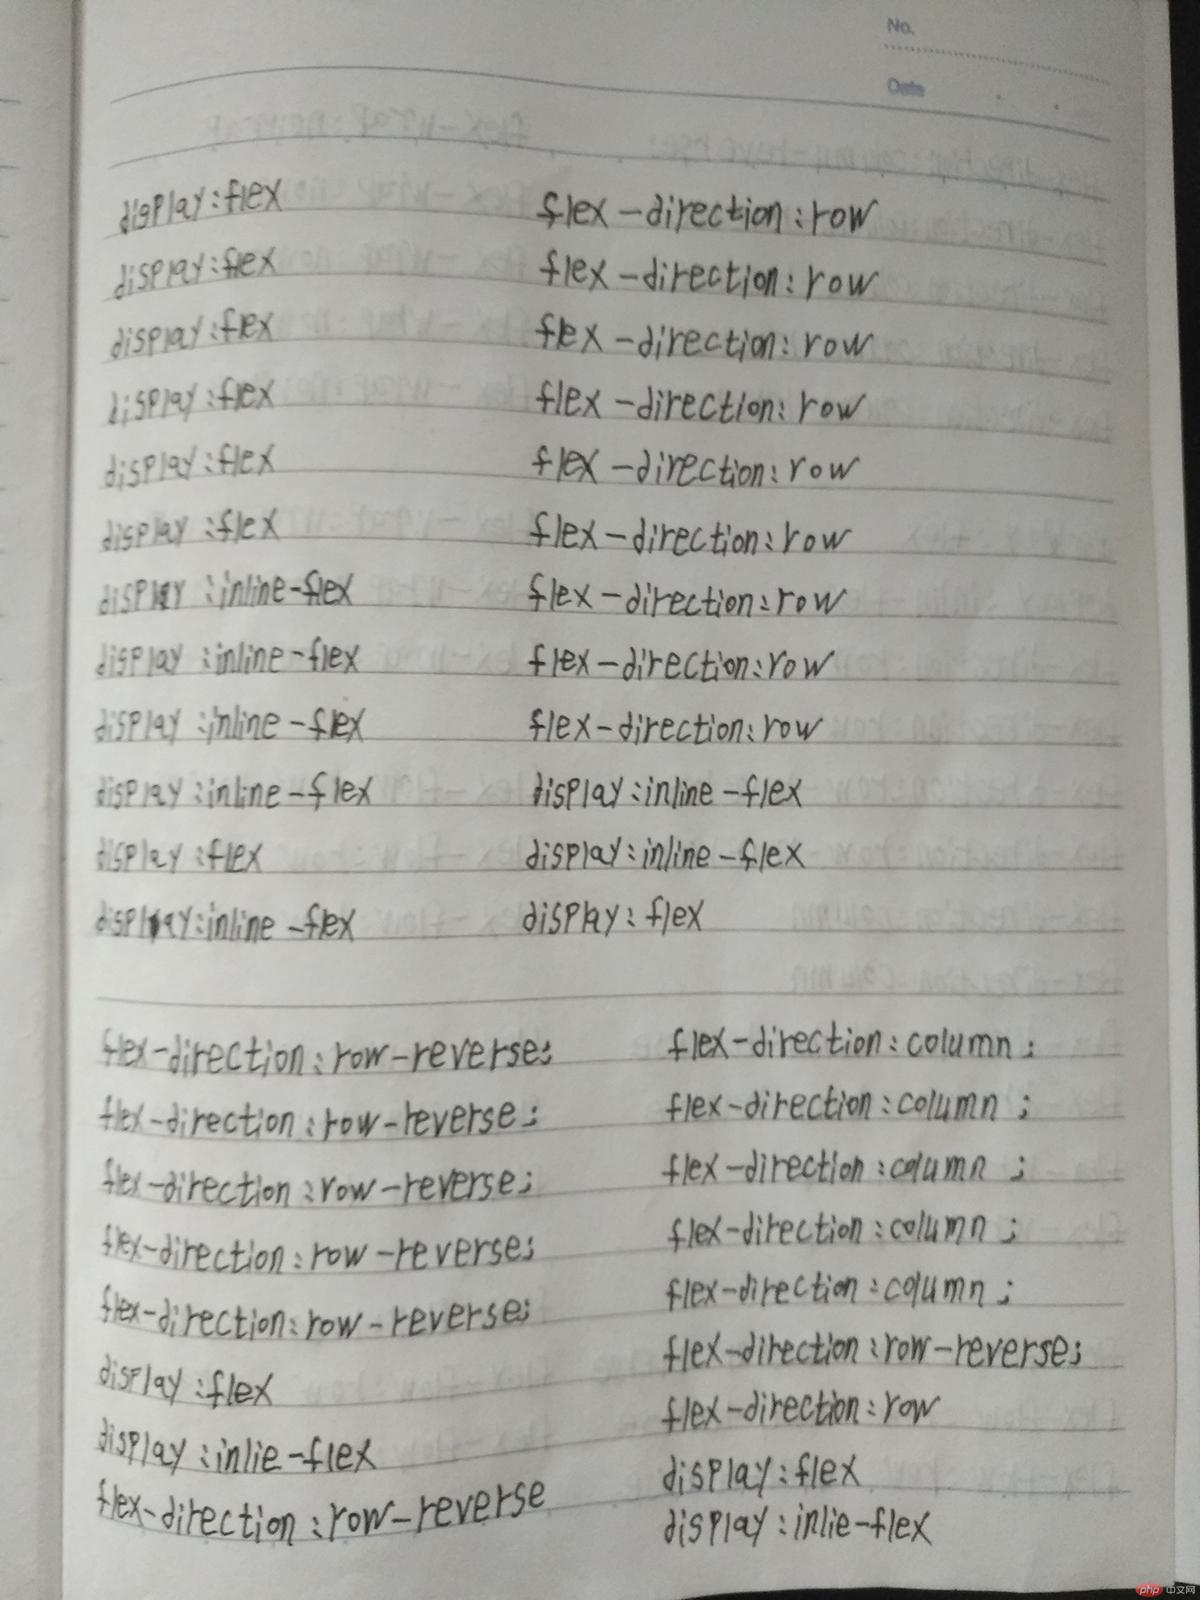 No.
Date
display:flex
display:flex
display:flex
display:flex
display:flex
display:flex
display:inline-flex
display:inline-flex
display:inline-flex
display:inline-flex
display:flex
display:inline-flex
flex-direction:row
flex-direction:row
flex-direction:row
flex-direction:row
flex-direction:row
flex-direction:row
flex-direction:row
flex-direction:row
flex-direction:row
display:inline-flex
display:inline-flex
display:flex
flex-direction:row-reverse;
flex-direction:row-reverse;
flex-direction:row-reverse;
flex-direction:row-reverse;
flex-direction:row-reverse;
display:flex
display:inlie-flex
flex-direction:row-reverse
flex-direction:column;
flex-direction:column;
flex-direction:column;
flex-direction:column;
flex-direction:column;
flex-direction:row-reverse;
flex-direction:row
display:flex
display:inlie-flex
php 中文网